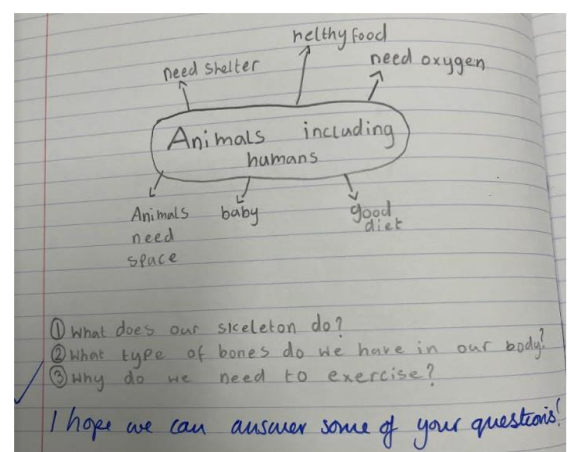 helthy food
need shelter
need oxygen
Animals including
humans
Animals
need
space
baby
good
diet
① What does our skeleton do?
② What type of bones do we have in our body?
③ Why do we need to exercise?
I hope we can answer some of your questions!